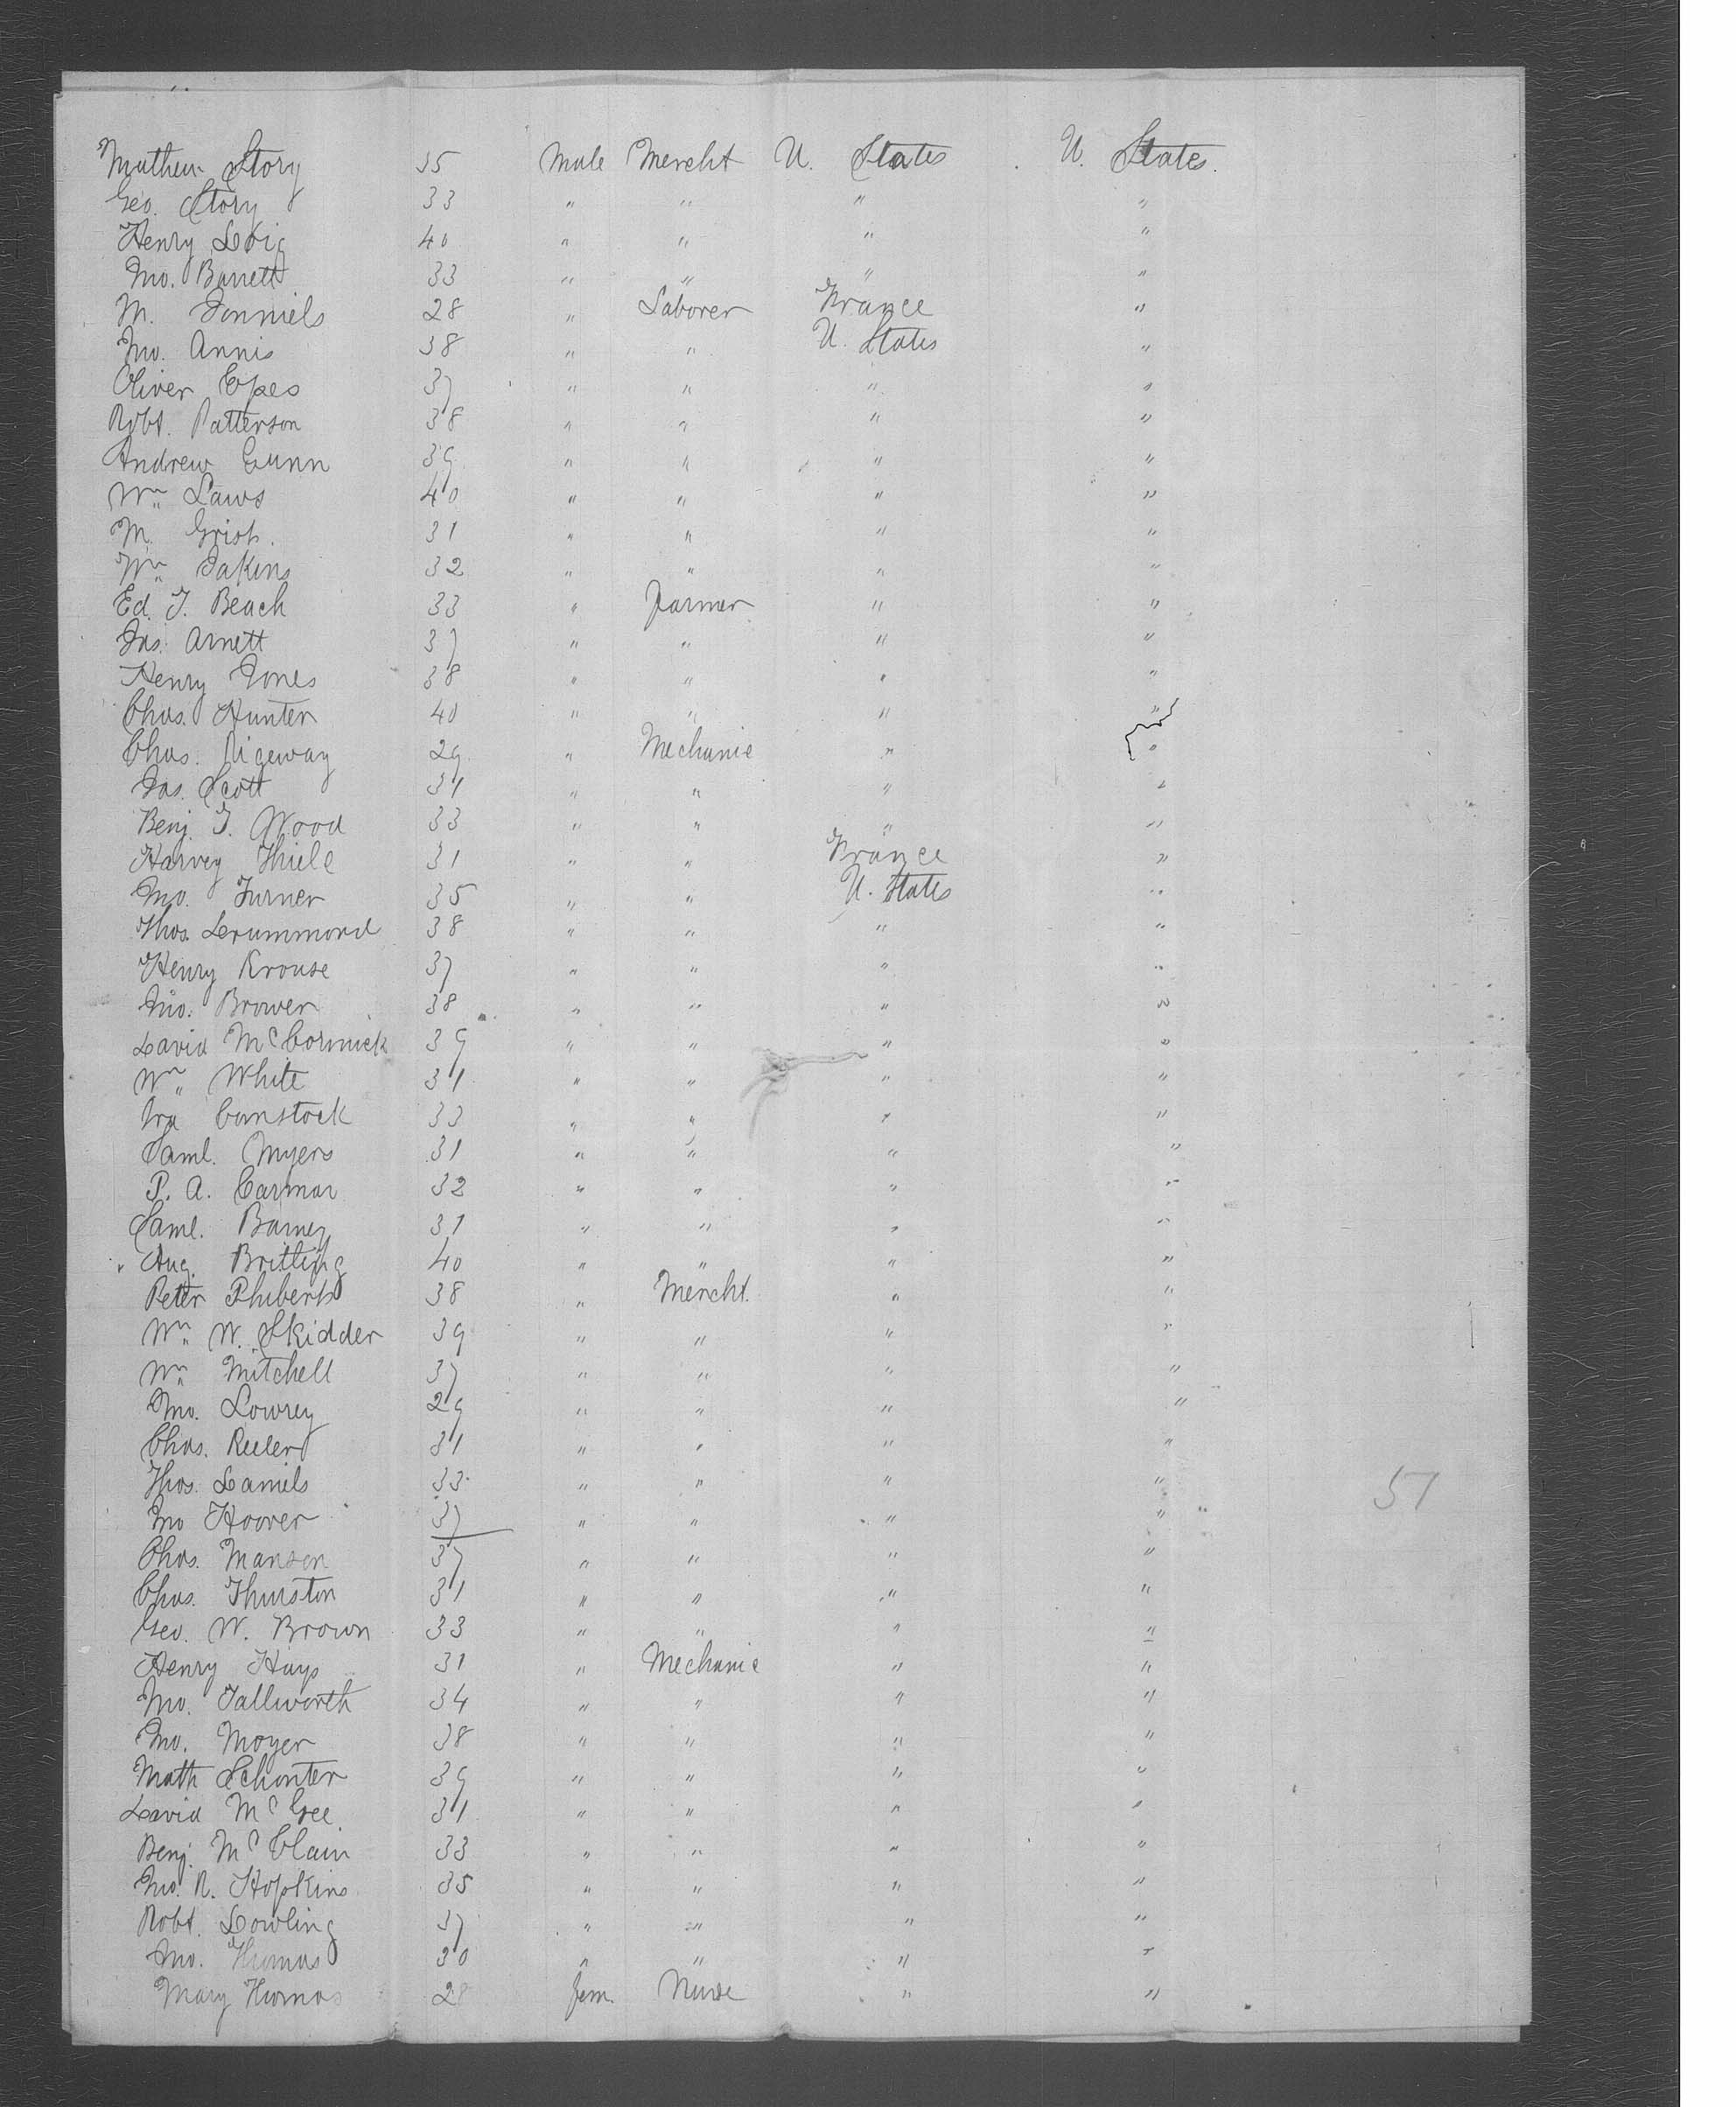 Mathew Story 35 Male Mercht U. States U. States.
Geo. Story 33 " " " "
Henry 40 " " " "
Jno. Barrett 33 " " " "
M. 28 " Laborer France "
Jno. Annis 38 " " U. States "
Oliver Epes 37 " " " "
Robt. Patterson 38 " " " "
Andrew Gunn 39 " " " "
Wm Laws 40 " " " "
M. 31 " " " "
Wm Jakins 32 " " " "
Ed. T. Beach 33 " Farmer " "
Jas. Arnett 37 " " " "
Henry Jones 38 " " " "
Chas. Hunter 40 " " " "
Chas. Rigeway 29 " Mechanic " "
Jas. Scott 31 " " " "
Benj. T. Wood 33 " " " "
Harvey Thiele 31 " " France "
Jno. Turner 35 " " U. States "
Thos. Drummond 38 " " " "
Henry Krouse 37 " " " "
Jno. Brower 38 " " " "
David McCormick 39 " " " "
Wm White 31 " " " "
Ira Comstock 33 " " " "
Saml. Myers 31 " " " "
P. A. Carman 32 " " " "
Saml. Barney 31 " " " "
Aug. Britting 40 " " " "
Peter 38 " Mercht. " "
Wm W. Skidder 39 " " " "
Wm Mitchell 37 " " " "
Jno. Lowrey 29 " " " "
Chas. Reeler 31 " " " "
Thos. Daniels 33 " " " "
57
Jno Hoover 37 " " " "
Chas. Manson 37 " " " "
Chas. Thurston 31 " " " "
Geo. W. Brown 33 " " " "
Henry Hays 31 " Mechanic " "
Jno. Tallworth 34 " " " "
Jno. Moyer 38 " " " "
Math Schonter 39 " " " "
David McGee 31 " " " "
Benj. McClain 33 " " " "
Jno. R. Hopkins 35 " " " "
Robt. Dowling 37 " " " "
Jno. Thomas 30 " " " "
Mary Thomas 28 Fem. Nurse " "